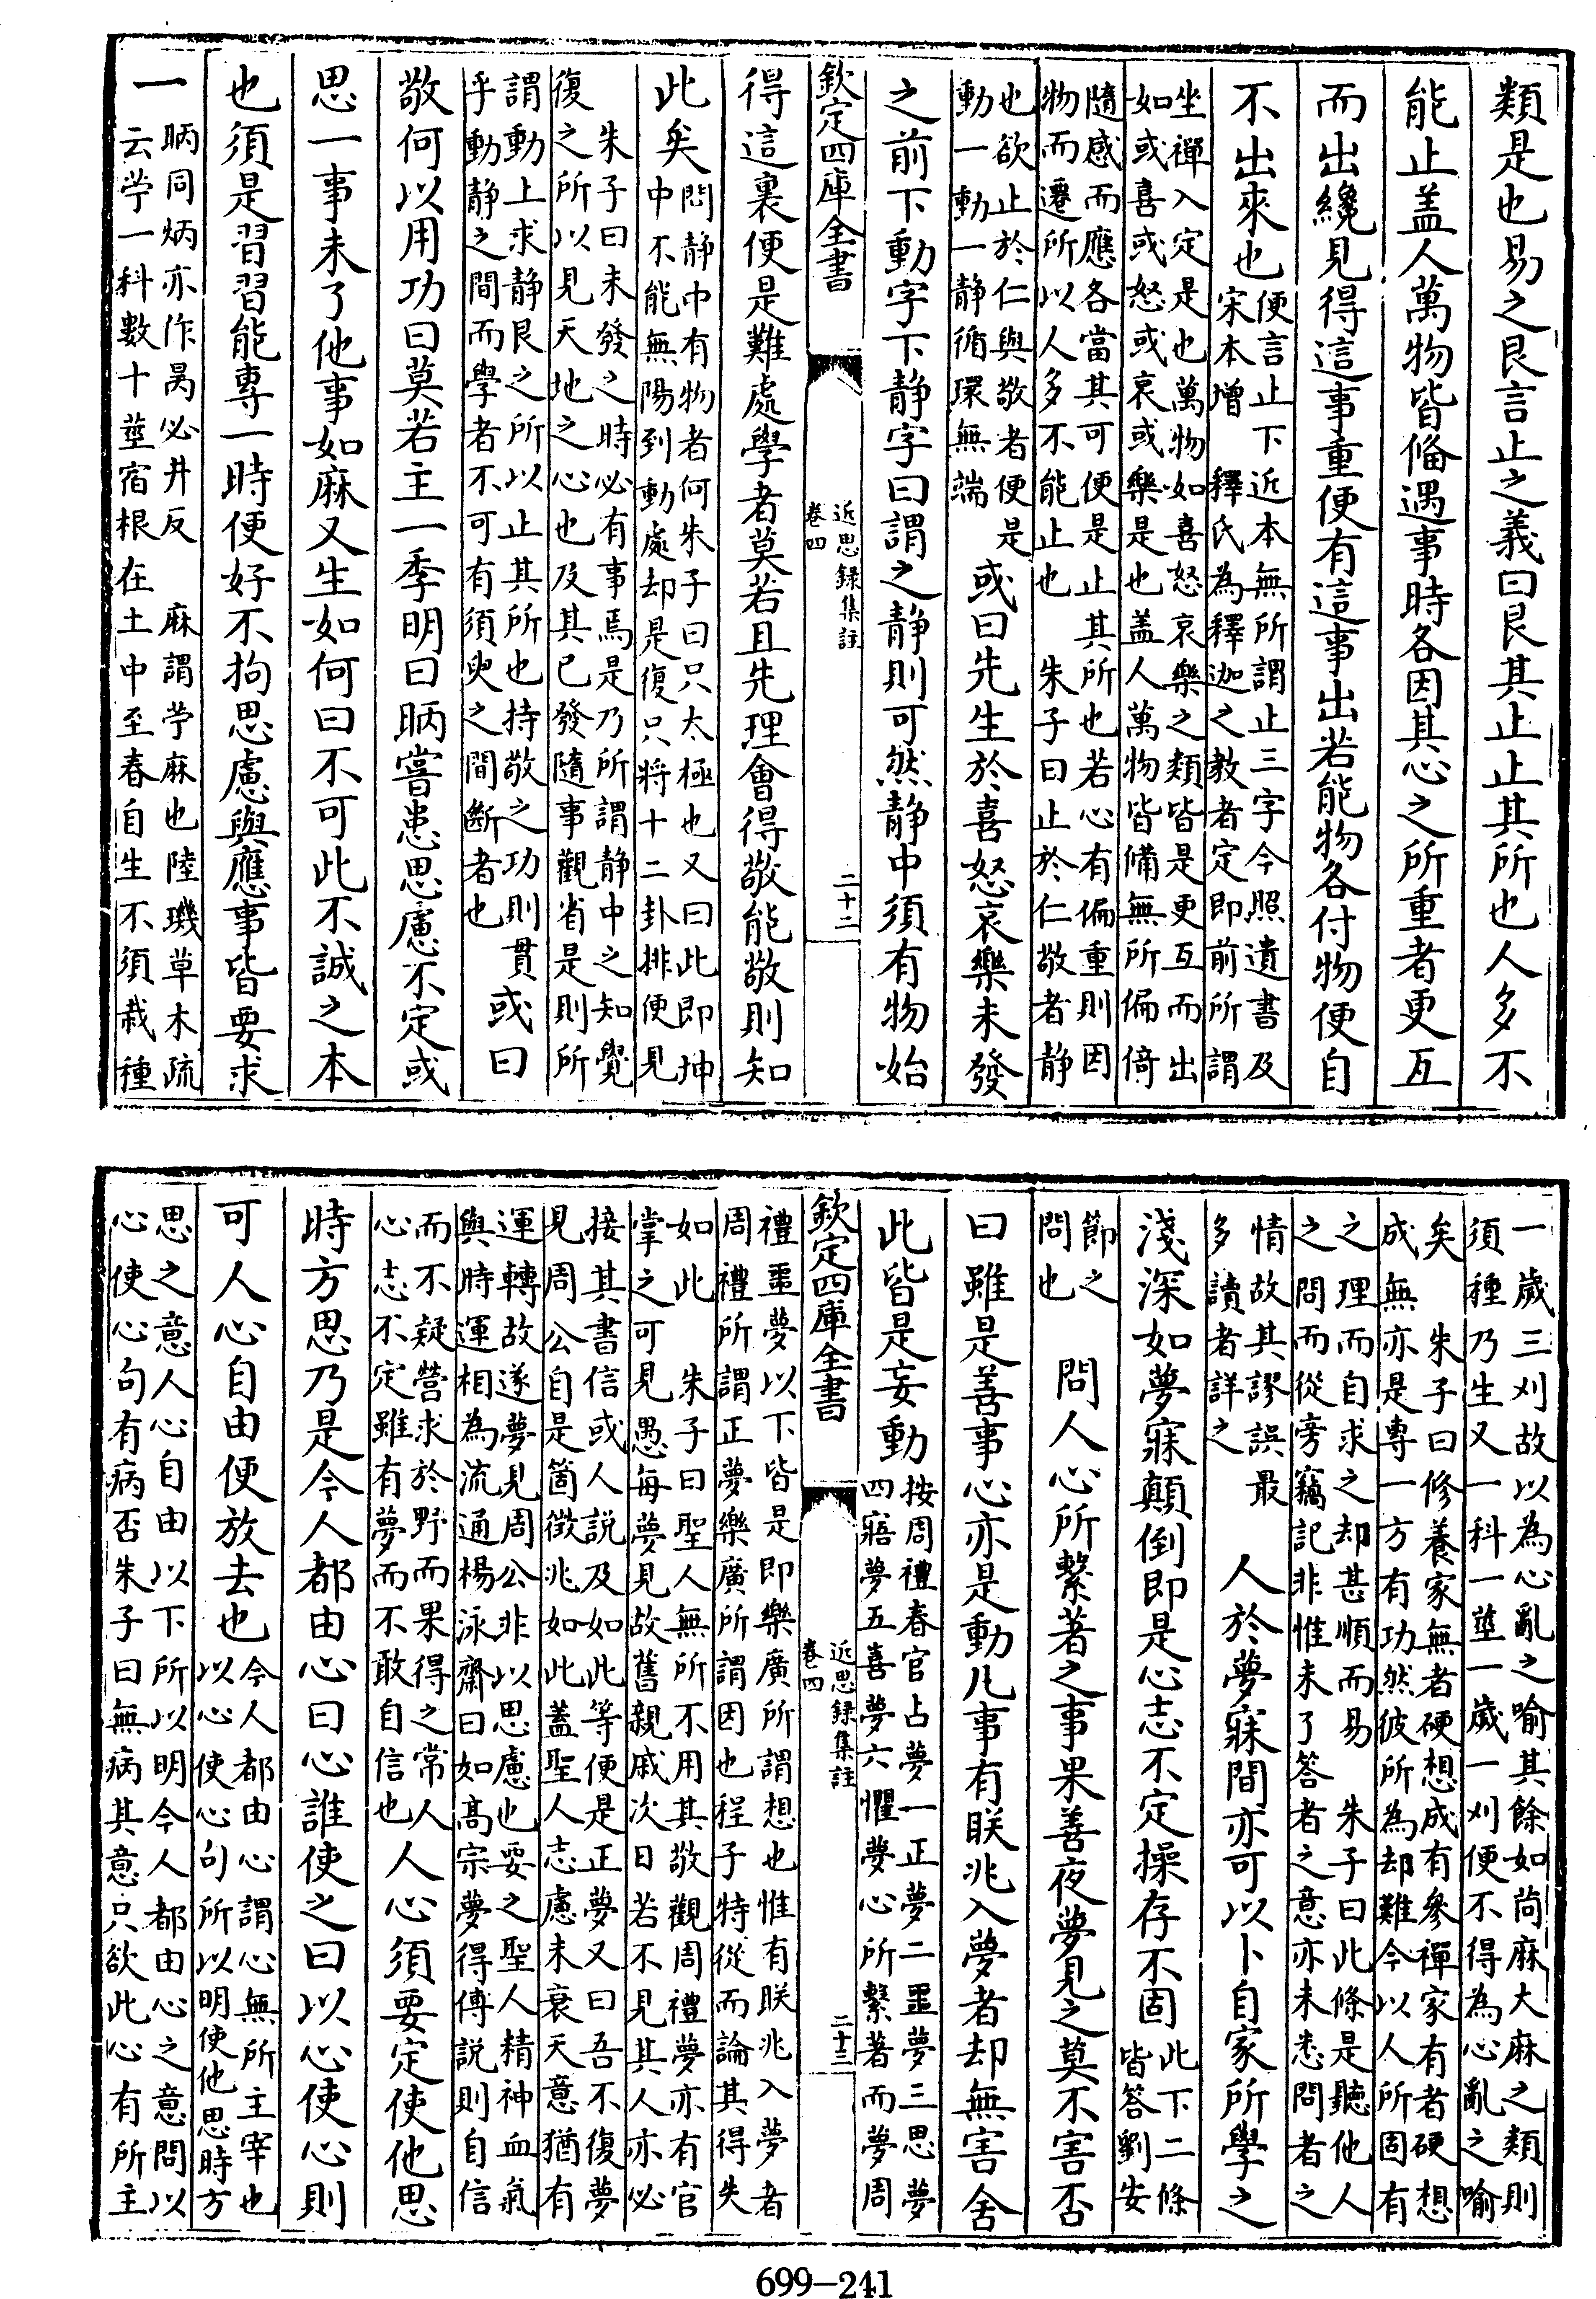 類是也易之艮言止之義曰艮其止止其所也人多不
能止盖人萬物皆備遇事時各因其心之所重者更互
而出纔見得這事重便有這事出若能物各付物便自
不出來也
便言止下近本無所謂止三字今照遺書及
宋本增　釋氏為釋迦之教者定即前所謂
坐禪入定是也萬物如喜怒哀樂之類皆是更互而出
如或喜或怒或哀或樂是也盖人萬物皆備無所偏倚
隨感而應各當其可便是止其所也若心有偏重則因
物而遷所以人多不能止也　朱子曰止於仁敬者静
也欲止於仁與敬者便是
動一動一静循環無端
或曰先生於喜怒哀樂未發
之前下動字下静字曰謂之静則可然静中須有物始
欽定四庫全書
近思録集註
卷四
二十二
得這裏便是難處學者莫若且先理會得敬能敬則知
此矣
問静中有物者何朱子曰只太極也又曰此即坤
中不能無陽到動處却是復只將十二卦排便見
朱子曰未發之時必有事焉是乃所謂静中之知覺
復之所以見天地之心也及其已發隨事觀省是則所
謂動上求静艮之所以止其所也持敬之功則貫
乎動静之間而學者不可有須臾之間斷者也
或曰
敬何以用功曰莫若主一季明曰昞嘗患思慮不定或
思一事未了他事如麻又生如何曰不可此不誠之本
也須是習習能專一時便好不拘思慮與應事皆要求
一
昞同炳亦作昺必井反　麻謂苧麻也陸璣草木疏
云苧一科數十莖宿根在土中至春自生不須栽種
一歲三刈故以為心亂之喻其餘如尚麻大麻之類則
須種乃生又一科一莖一歲一刈便不得為心亂之喻
矣　朱子曰修養家無者硬想成有參禪家有者硬想
成無亦是專一方有功然彼所為却難今以人所固有
之理而自求之却甚順而易　朱子曰此條是聽他人
之問而從旁竊記非惟未了答者之意亦未悉問者之
情故其謬誤最
多讀者詳之
人於夢寐間亦可以卜自家所學之
淺深如夢寐顛倒即是心志不定操存不固
此下二條
皆答劉安
節之
問也
問人心所繫著之事果善夜夢見之莫不害否
曰雖是善事心亦是動凡事有眹兆入夢者却無害舍
此皆是妄動
按周禮春官占夢一正夢二噩夢三思夢
四寤夢五喜夢六懼夢心所繫著而夢周
欽定四庫全書
近思録集註
卷四
二十三
禮噩夢以下皆是即樂廣所謂想也惟有眹兆入夢者
周禮所謂正夢樂廣所謂因也程子特從而論其得失
如此　朱子曰聖人無所不用其敬觀周禮夢亦有官
掌之可見愚每夢見故舊親戚次日若不見其人亦必
接其書信或人說及如此等便是正夢又曰吾不復夢
見周公自是箇徵兆如此蓋聖人志慮未衰天意猶有
運轉故遂夢見周公非以思慮也要之聖人精神血氣
與時運相為流通楊泳齋曰如高宗夢得傅說則自信
而不疑營求於野而果得之常人
心志不定雖有夢而不敢自信也
人心須要定使他思
時方思乃是今人都由心曰心誰使之曰以心使心則
可人心自由便放去也
今人都由心謂心無所主宰也
以心使心句所以明使他思時方
思之意人心自由以下所以明今人都由心之意問以
心使心句有病否朱子曰無病其意只欲此心有所主
699-241